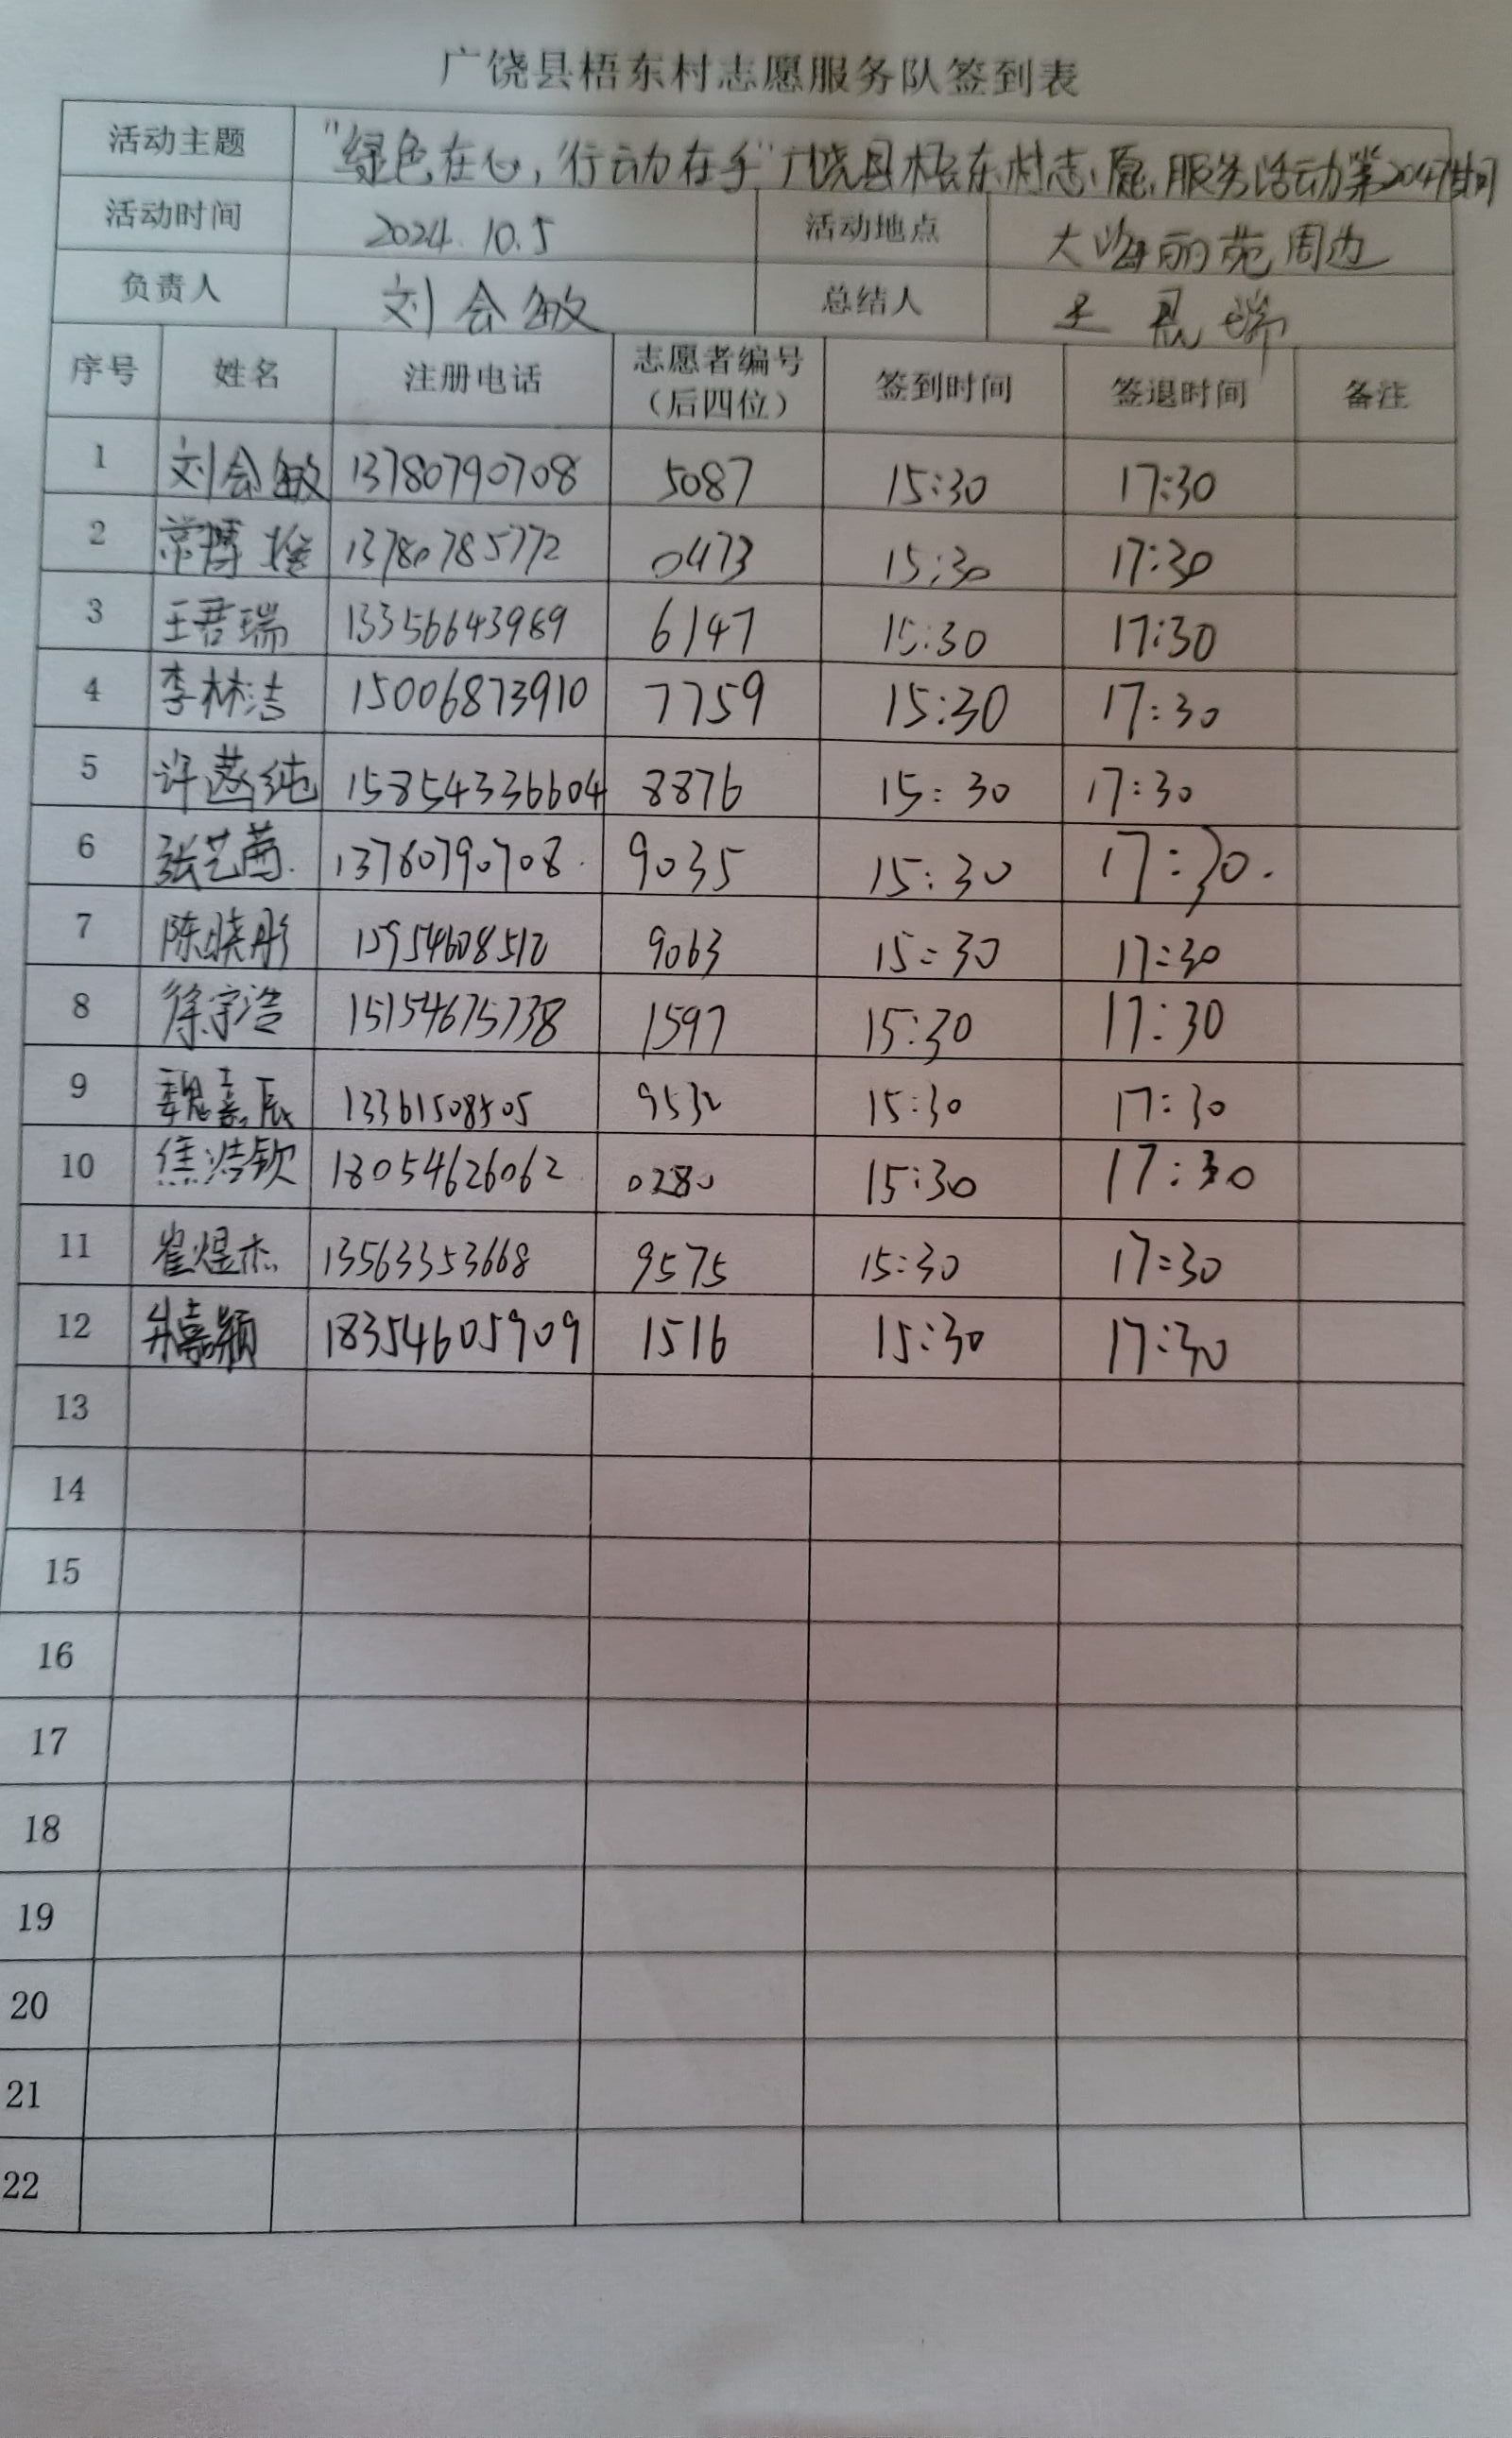 广饶县梧东村志愿服务队签到表
活动主题 "绿色在心,行动在手"广饶县梧东村志愿服务活动第2047时间
活动时间 2024.10.5 活动地点 大海丽苑周边
负责人 刘会敏 总结人 王君瑞
序号 姓名 注册电话 志愿者编号（后四位） 签到时间 签退时间 备注
1 刘会敏 13780790708 5087 15:30 17:30
2 常博 13780785772 0473 15:30 17:30
3 王君瑞 13356643969 6147 15:30 17:30
4 李林洁 15006873910 7759 15:30 17:30
5 许纯 15854336604 8876 15:30 17:30
6 张艺茜 13780790708 9035 15:30 17:30
7 陈晓彤 15954608512 9063 15:30 17:30
8 徐宇浩 15154675738 1597 15:30 17:30
9 魏嘉辰 13361508505 9532 15:30 17:30
10 焦浩钦 18054626062 0280 15:30 17:30
11 崔煜杰 13563353668 9575 15:30 17:30
12 嘉颖 18354605909 1516 15:30 17:30
13
14
15
16
17
18
19
20
21
22